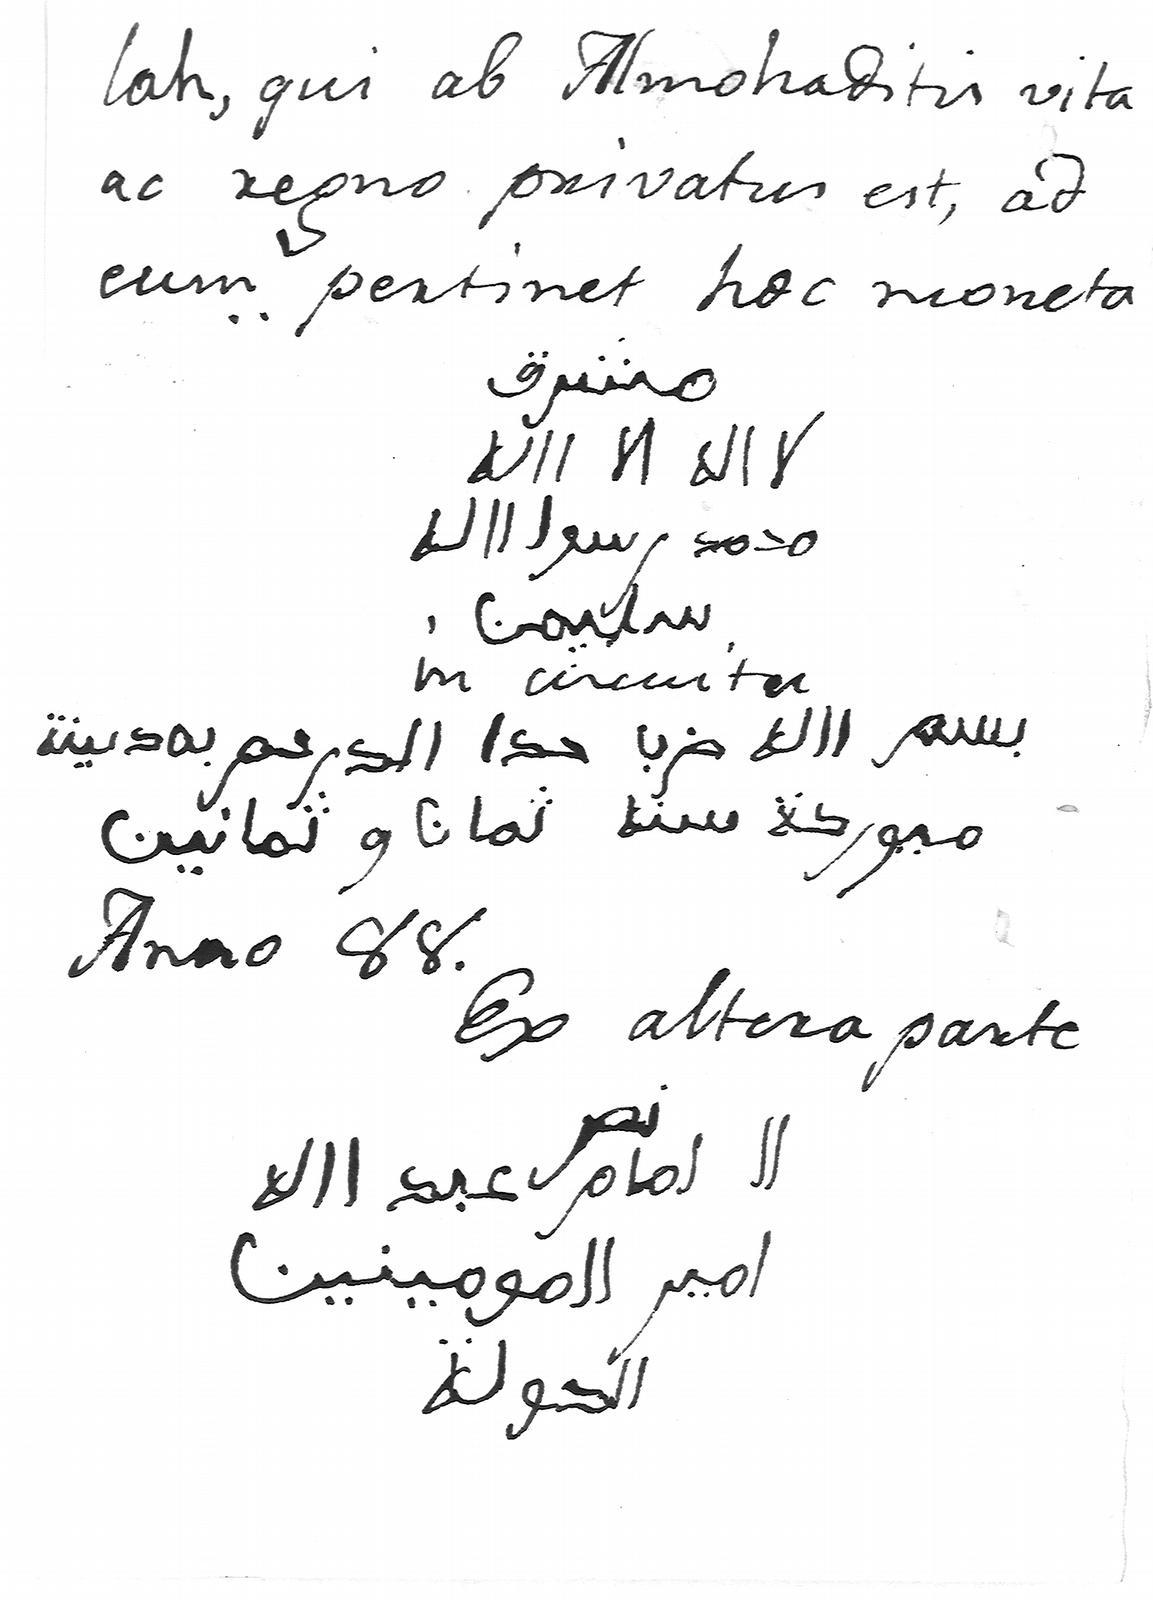 lah, qui ab Almohaditis vita
ac regno privatus est, ad
eum pertinet hæc moneta
مبشر
لا اله الا الله
محمد رسول الله
سليمن
in circuitu
بسم الله ضرب هدا الدرهم بمدينة
ميورقة سنة ثمان و ثمانين
Anno 88.
Ex altera parte
نصر
الامام عبد الله
امير المومنين
الدولة